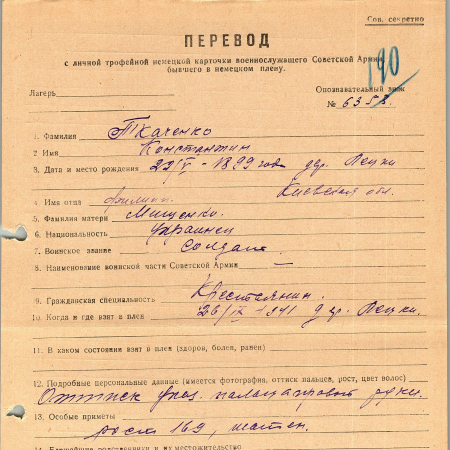 Сов. секретно
ПЕРЕВОД
с личной трофейной немецкой карточки военнослужащего Советской Армии,
бывшего в немецком плену.
190
Лагерь
Опознавательный знак
№ 6358.
1. Фамилия Ткаченко
2 Имя Константин
3. Дата и место рождения 22/V - 1899 года дер. Пецки
Киевская обл.
4. Имя отца Филипп
5. Фамилия матери Мищенко.
6. Национальность украинец
7. Воинское звание солдат
8. Наименование воинской части Советской Армии —
9. Гражданская специальность Крестьянин.
10. Когда и где взят в плен 26/IX 1941 дер. Пецки.
11. В каком состоянии взят в плен (здоров, болен, ранен)
12. Подробные персональные данные (имеется фотография, оттиск пальцев, рост, цвет волос)
Оттиск указ. пальца правой руки.
13. Особые приметы
рост 169,
14. Ближайшие родственники и их местожительство